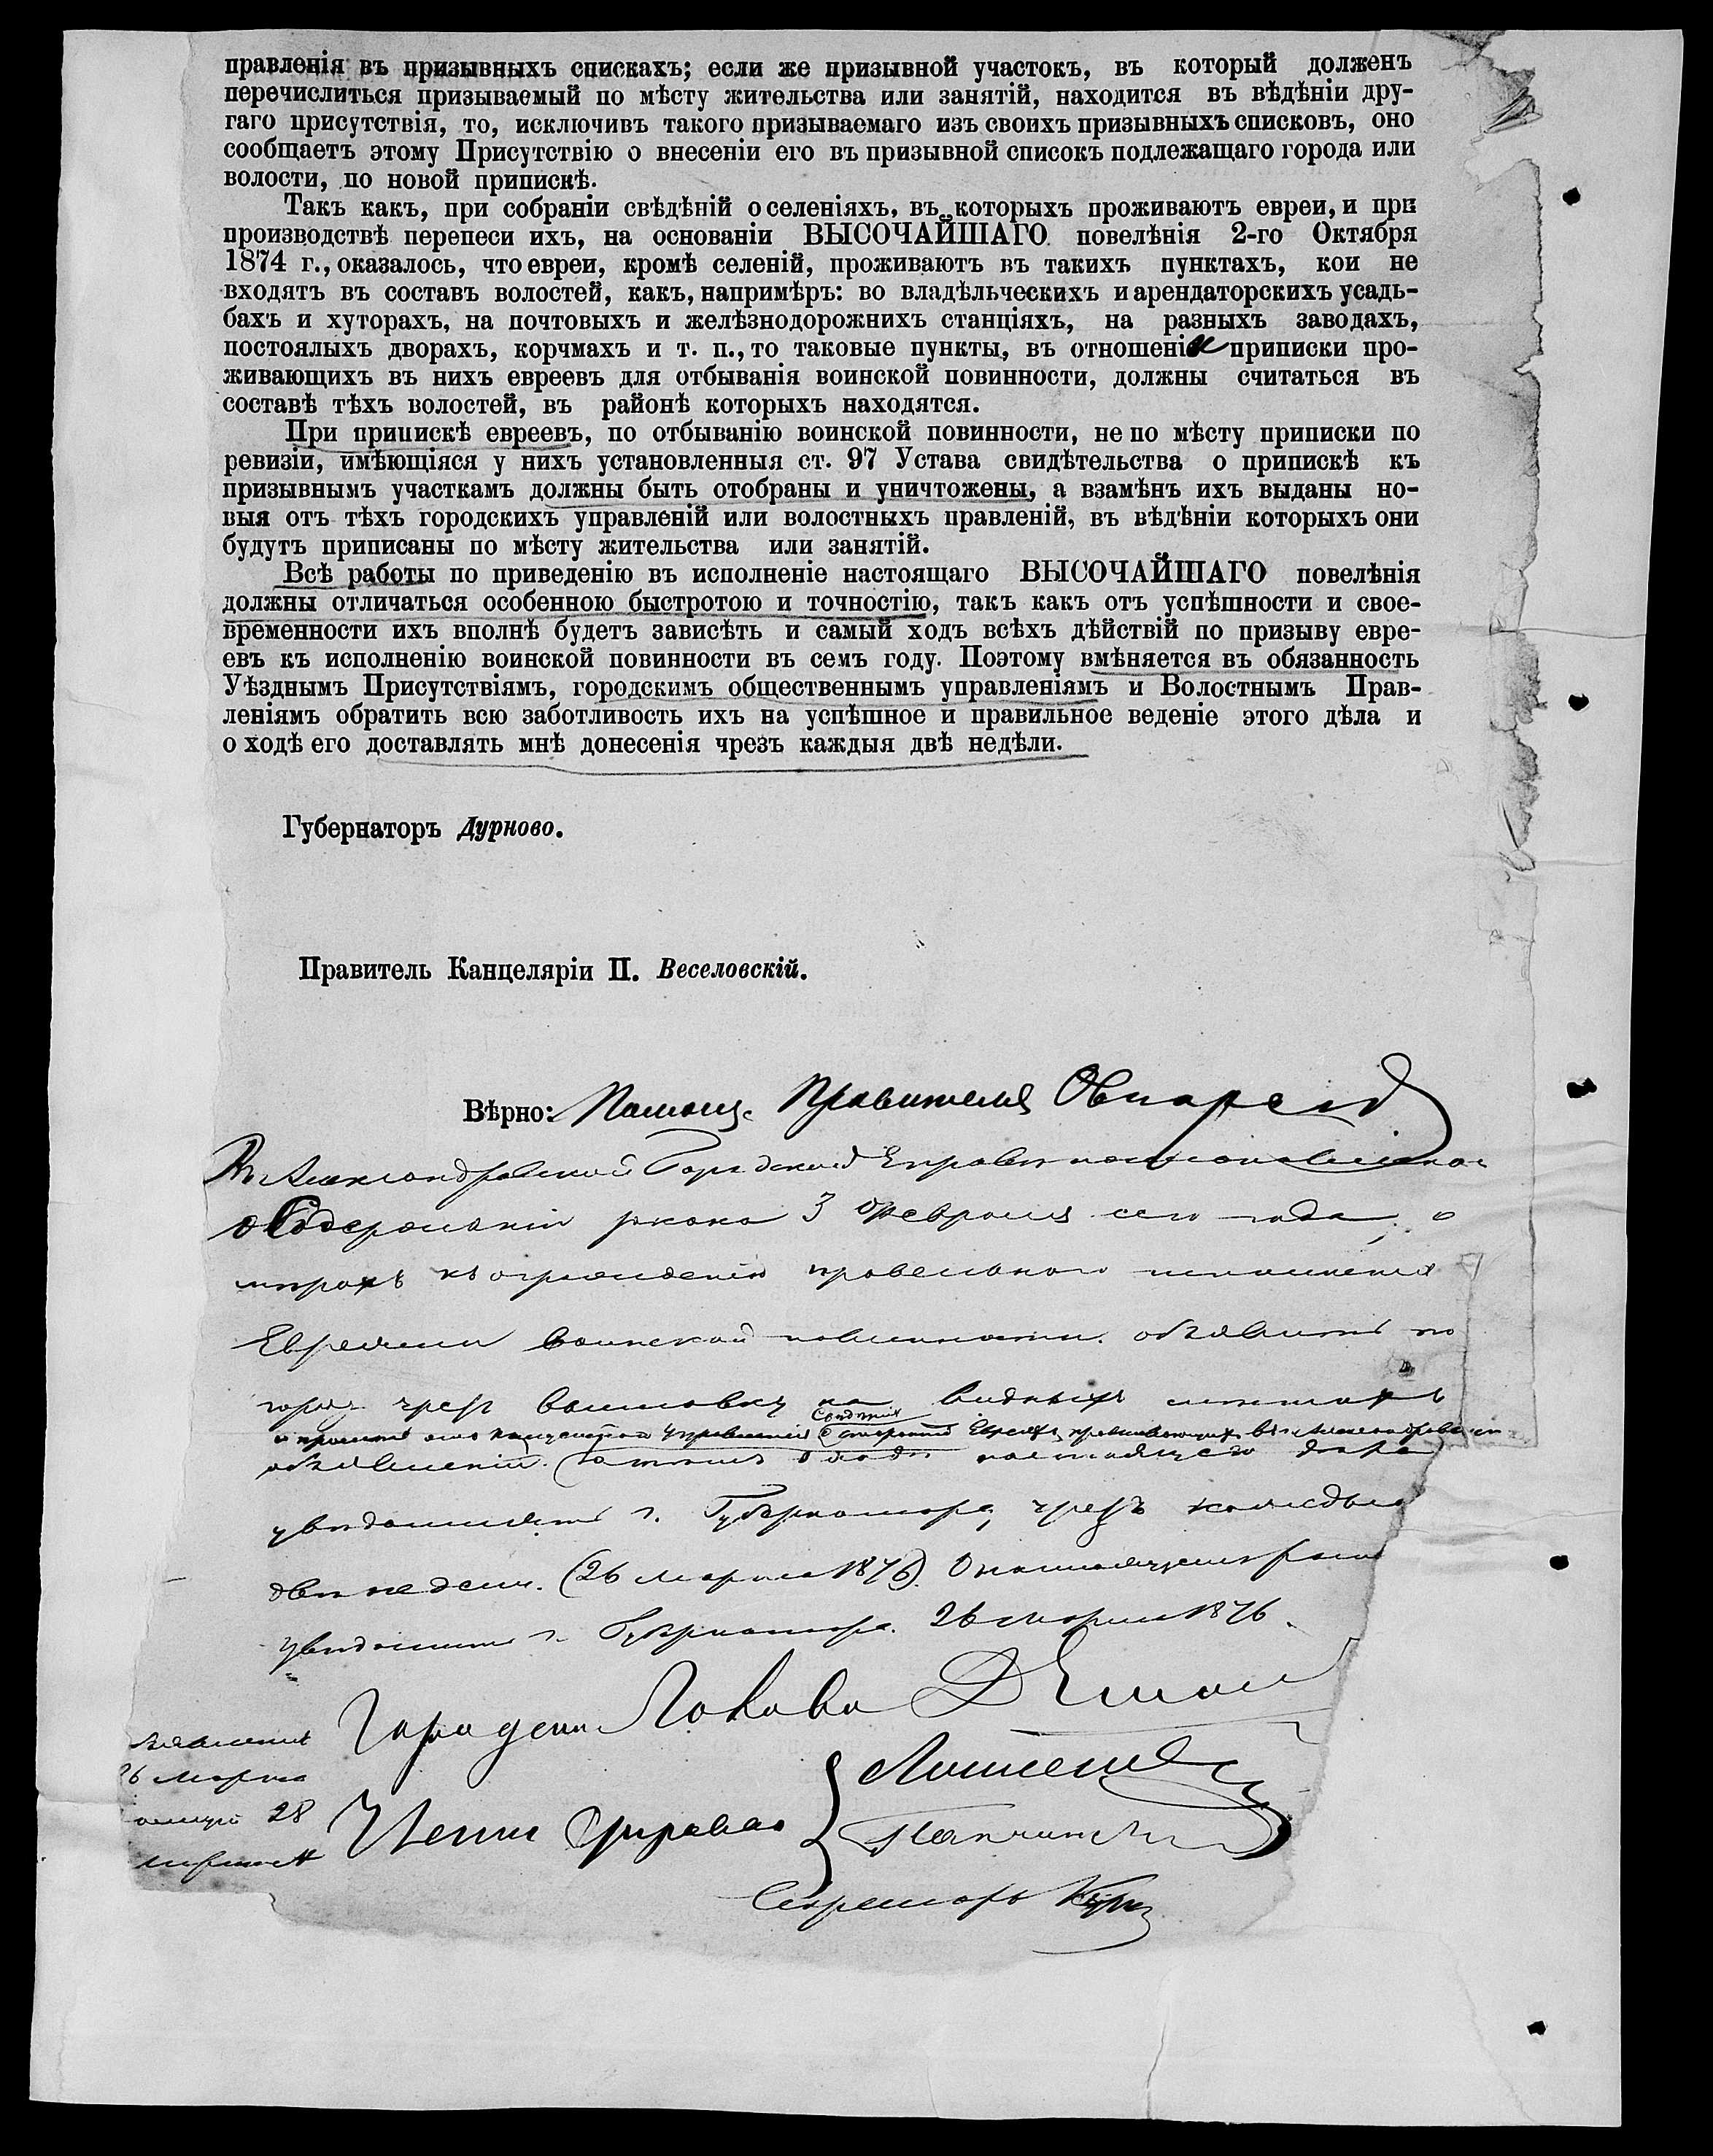 правленія въ призывныхъ спискахъ; если же призывной участокъ, въ который долженъ
перечислиться призываемый по мѣсту жительства или занятій, находится въ вѣдѣніи дру-
гаго присутствія, то, исключивъ такого призываемаго изъ своихъ призывныхъ списковъ, оно
сообщаетъ этому Присутствію о внесеніи его въ призывной списокъ подлежащаго города или
волости, по новой припискѣ.
Такъ какъ, при собраніи свѣдѣній о селеніяхъ, въ которыхъ проживаютъ евреи, и при
производствѣ переписи ихъ, на основаніи ВЫСОЧАЙШАГО повелѣнія 2-го Октября
1874 г., оказалось, что евреи, кромѣ селеній, проживаютъ въ такихъ пунктахъ, кои не
входятъ въ составъ волостей, какъ, напримѣръ: во владѣльческихъ и арендаторскихъ усадь-
бахъ и хуторахъ, на почтовыхъ и желѣзнодорожнихъ станціяхъ, на разныхъ заводахъ,
постоялыхъ дворахъ, корчмахъ и т. п., то таковые пункты, въ отношеніи приписки про-
живающихъ въ нихъ евреевъ для отбыванія воинской повинности, должны считаться въ
составѣ тѣхъ волостей, въ районѣ которыхъ находятся.
При припискѣ евреевъ, по отбыванію воинской повинности, не по мѣсту приписки по
ревизіи, имѣющіяся у нихъ установленныя ст. 97 Устава свидѣтельства о припискѣ къ
призывнымъ участкамъ должны быть отобраны и уничтожены, а взамѣнъ ихъ выданы но-
выя отъ тѣхъ городскихъ управленій или волостныхъ правленій, въ вѣдѣніи которыхъ они
будутъ приписаны по мѣсту жительства или занятій.
Всѣ работы по приведенію въ исполненіе настоящаго ВЫСОЧАЙШАГО повелѣнія
должны отличаться особенною быстротою и точностію, такъ какъ отъ успѣшности и свое-
временности ихъ вполнѣ будетъ зависѣть и самый ходъ всѣхъ дѣйствій по призыву евре-
евъ къ исполненію воинской повинности въ семъ году. Поэтому вмѣняется въ обязанность
Уѣзднымъ Присутствіямъ, городскимъ общественнымъ управленіямъ и Волостнымъ Прав-
леніямъ обратить всю заботливость ихъ на успѣшное и правильное веденіе этого дѣла и
о ходѣ его доставлять мнѣ донесенія чрезъ каждыя двѣ недѣли.
Губернаторъ Дурново.
Правитель Канцеляріи П. Веселовскій.
Вѣрно: Помощ. Правителя
Въ Александровской Городской Управѣ
о Содержаніи указа 3 Февраля сего года, о
мѣрахъ къ огражденію правильнаго исполненія
Евреями воинской повинности объявить по
городу чрезъ выставку на видныхъ мѣстахъ
объявленій. о ходѣ настоящаго дѣла
увѣдомлять г. Губернатора, чрезъ каждыя
двѣ недѣли. (26 Марта 1876).
увѣдомить г. Губернатора. 26 марта 1876.
Городской Голова
26 Марта
28
Члены Управы
Секретарь